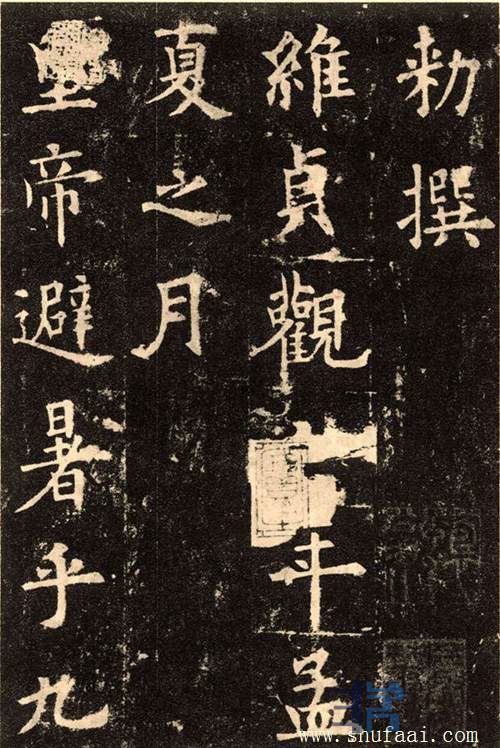 勑撰
維貞觀年孟
夏之月
皇帝避暑乎九
www.shufaai.com